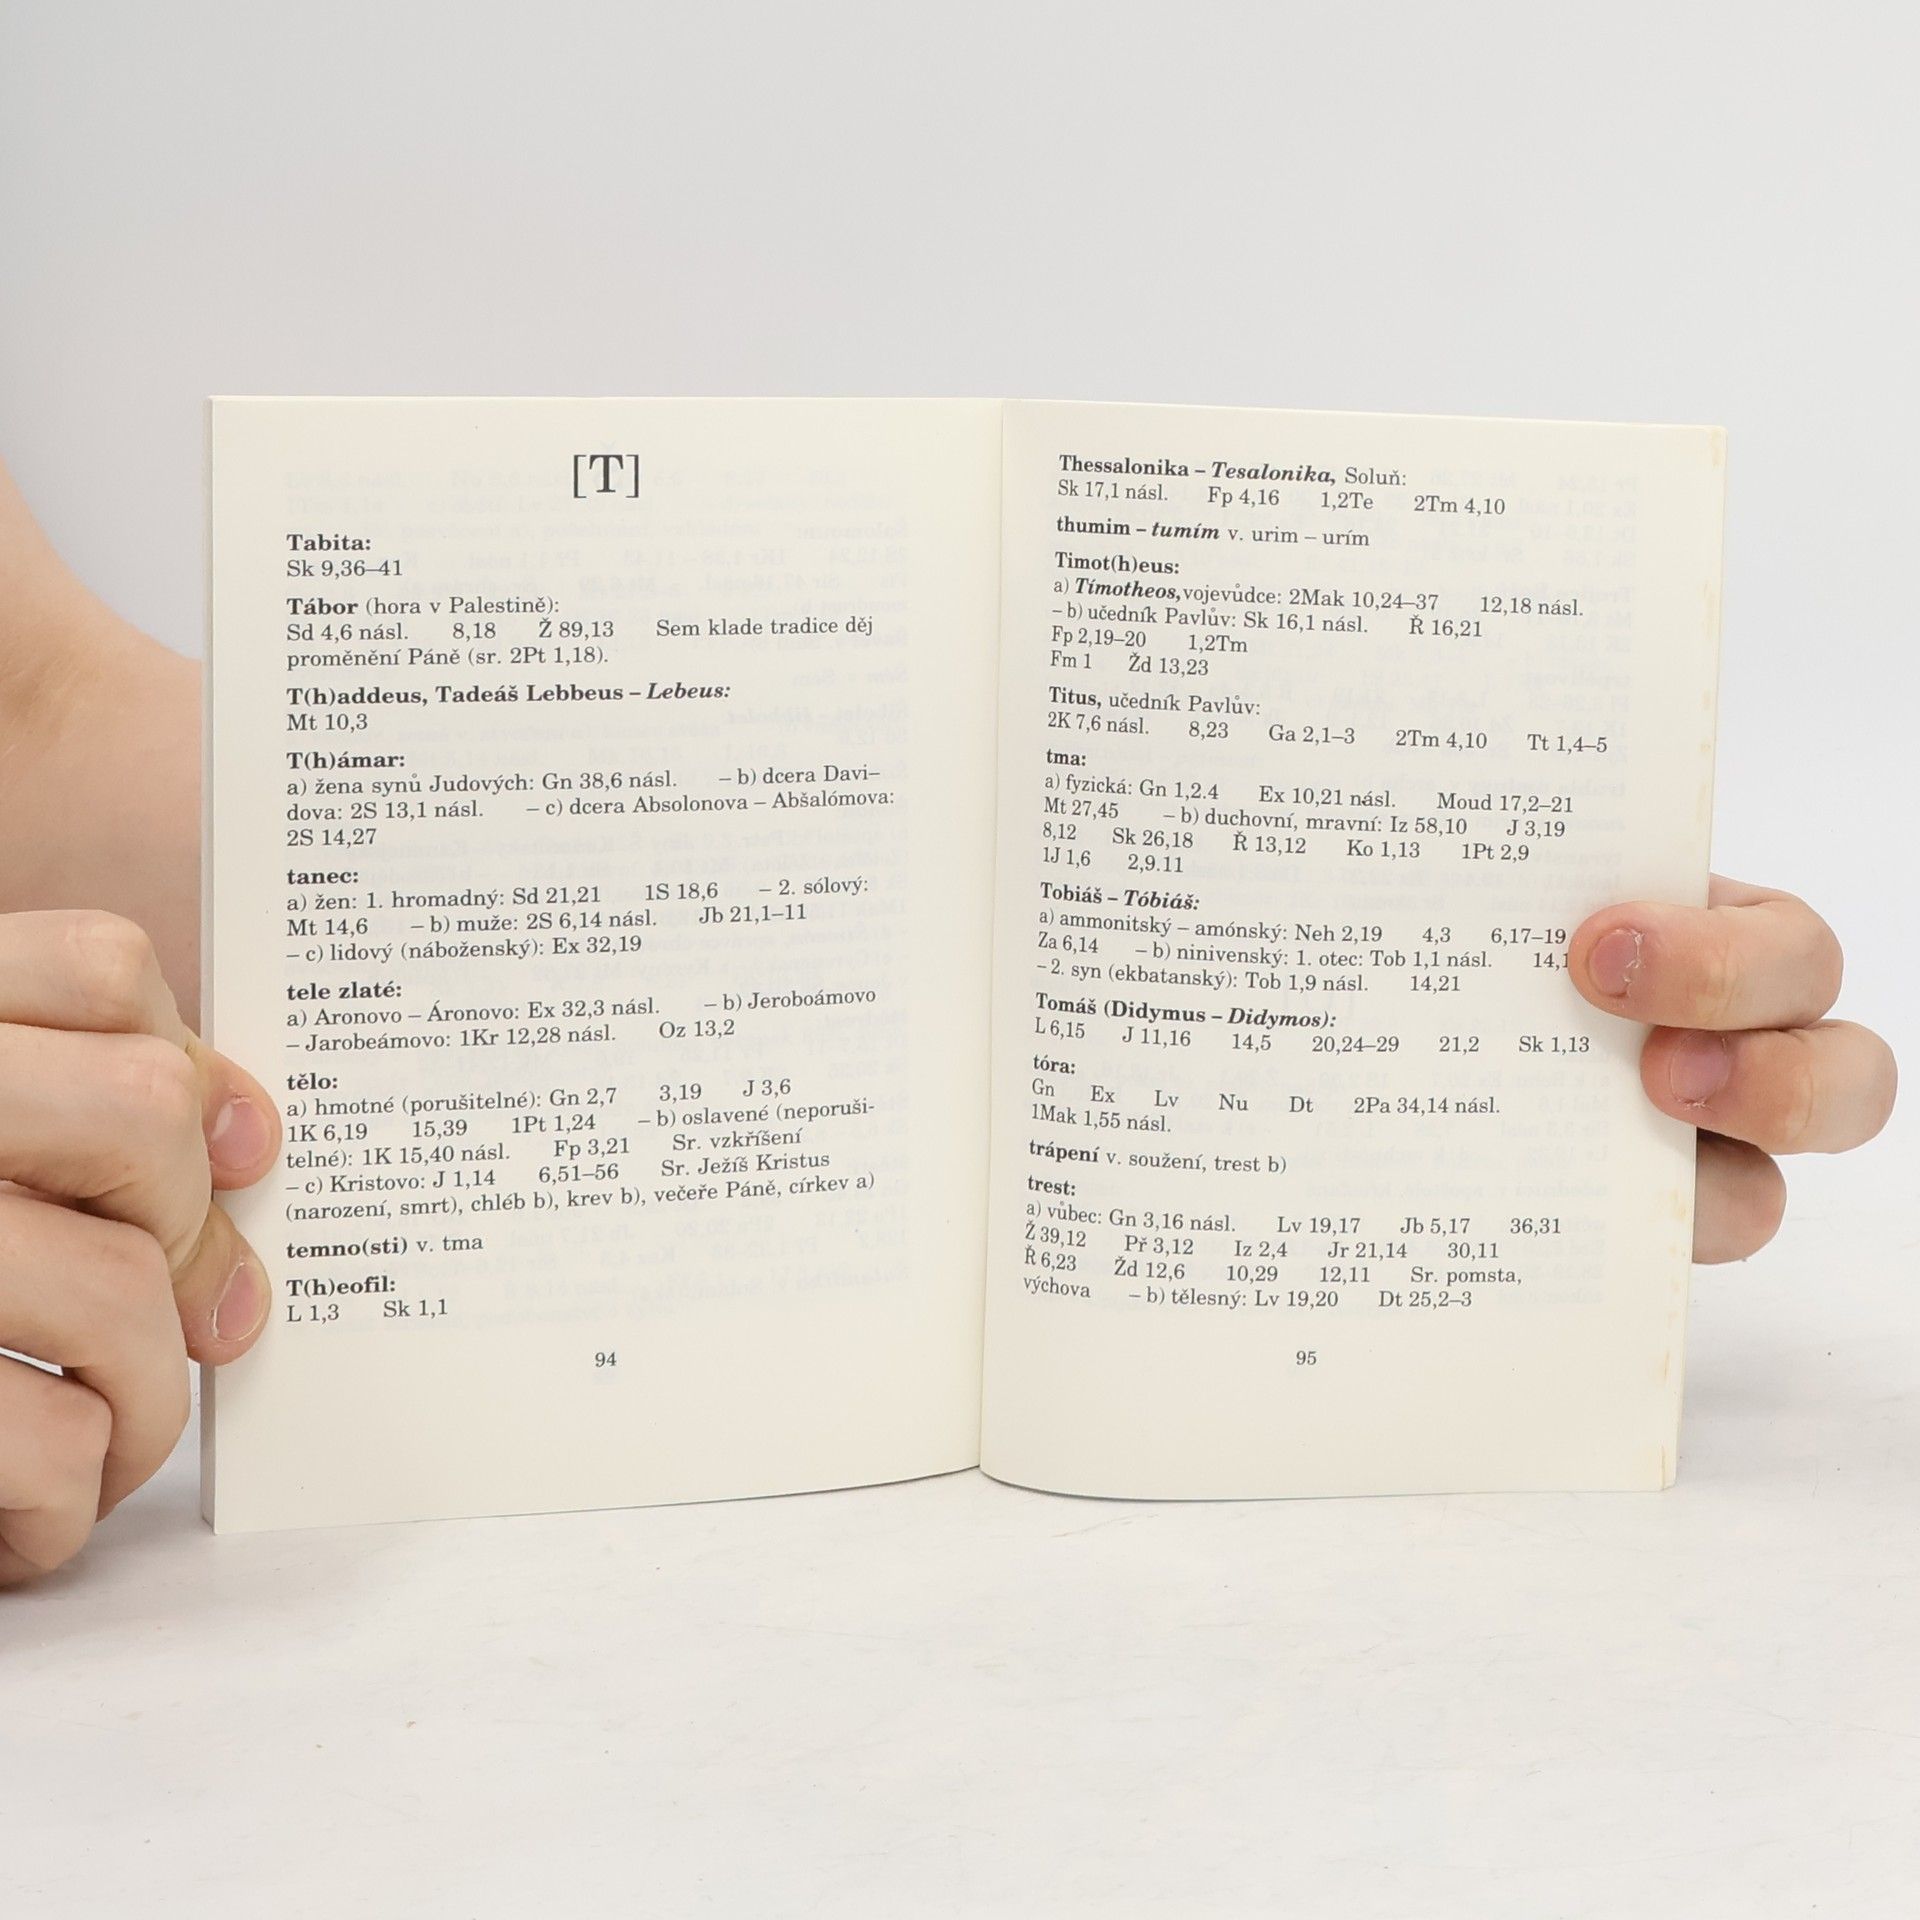 [T]
Tabita:
Sk 9,36–41
Tábor (hora v Palestině):
Sd 4,6 násl. 8,18 Ž 89,13 Sem klade tradice děj
proměnění Páně (sr. 2Pt 1,18).
T(h)addeus, Tadeáš Lebbeus – Lebeus:
Mt 10,3
T(h)ámar:
a) žena synů Judových: Gn 38,6 násl. – b) dcera Davi–
dova: 2S 13,1 násl. – c) dcera Absolonova – Abšalómova:
2S 14,27
tanec:
a) žen: 1. hromadný: Sd 21,21 1S 18,6 – 2. sólový:
Mt 14,6 – b) muže: 2S 6,14 násl. Jb 21,1–11
– c) lidový (náboženský): Ex 32,19
tele zlaté:
a) Aronovo – Áronovo: Ex 32,3 násl. – b) Jeroboámovo
– Jarobeámovo: 1Kr 12,28 násl. Oz 13,2
tělo:
a) hmotné (porušitelné): Gn 2,7 3,19 J 3,6
1K 6,19 15,39 1Pt 1,24 – b) oslavené (neporuši-
telné): 1K 15,40 násl. Fp 3,21 Sr. vzkříšení
– c) Kristovo: J 1,14 6,51–56 Sr. Ježíš Kristus
(narození, smrt), chléb b), krev b), večeře Páně, církev a)
temno(sti) v. tma
T(h)eofil:
L 1,3 Sk 1,1
94
Thessalonika – Tesalonika, Soluň:
Sk 17,1 násl. Fp 4,16 1,2Te 2Tm 4,10
thumim – tumím v. urim – urím
Timot(h)eus:
a) Tímotheos,vojevůdce: 2Mak 10,24–37 12,18 násl.
– b) učedník Pavlův: Sk 16,1 násl. Ř 16,21
Fp 2,19–20 1,2Tm
Fm 1 Žd 13,23
Titus, učedník Pavlův:
2K 7,6 násl. 8,23 Ga 2,1–3 2Tm 4,10 Tt 1,4–5
tma:
a) fyzická: Gn 1,2.4 Ex 10,21 násl. Moud 17,2–21
Mt 27,45 – b) duchovní, mravní: Iz 58,10 J 3,19
8,12 Sk 26,18 Ř 13,12 Ko 1,13 1Pt 2,9
1J 1,6 2,9.11
Tobiáš – Tóbiáš:
a) ammonitský – amónský: Neh 2,19 4,3 6,17–19
Za 6,14 – b) ninivenský: 1. otec: Tob 1,1 násl.
– 2. syn (ekbatanský): Tob 1,9 násl. 14,21
Tomáš (Didymus – Didymos):
L 6,15 J 11,16 14,5 20,24–29 21,2 Sk 1,13
tóra:
Gn Ex Lv Nu Dt 2Pa 34,14 násl.
1Mak 1,55 násl.
trápení v. soužení, trest b)
trest:
a) vůbec: Gn 3,16 násl. Lv 19,17 Jb 5,17 36,31
Ž 39,12 Př 3,12 Iz 2,4 Jr 21,14 30,11
Ř 6,23 Žd 12,6 10,29 12,11 Sr. pomsta,
výchova – b) tělesný: Lv 19,20 Dt 25,2–3
95